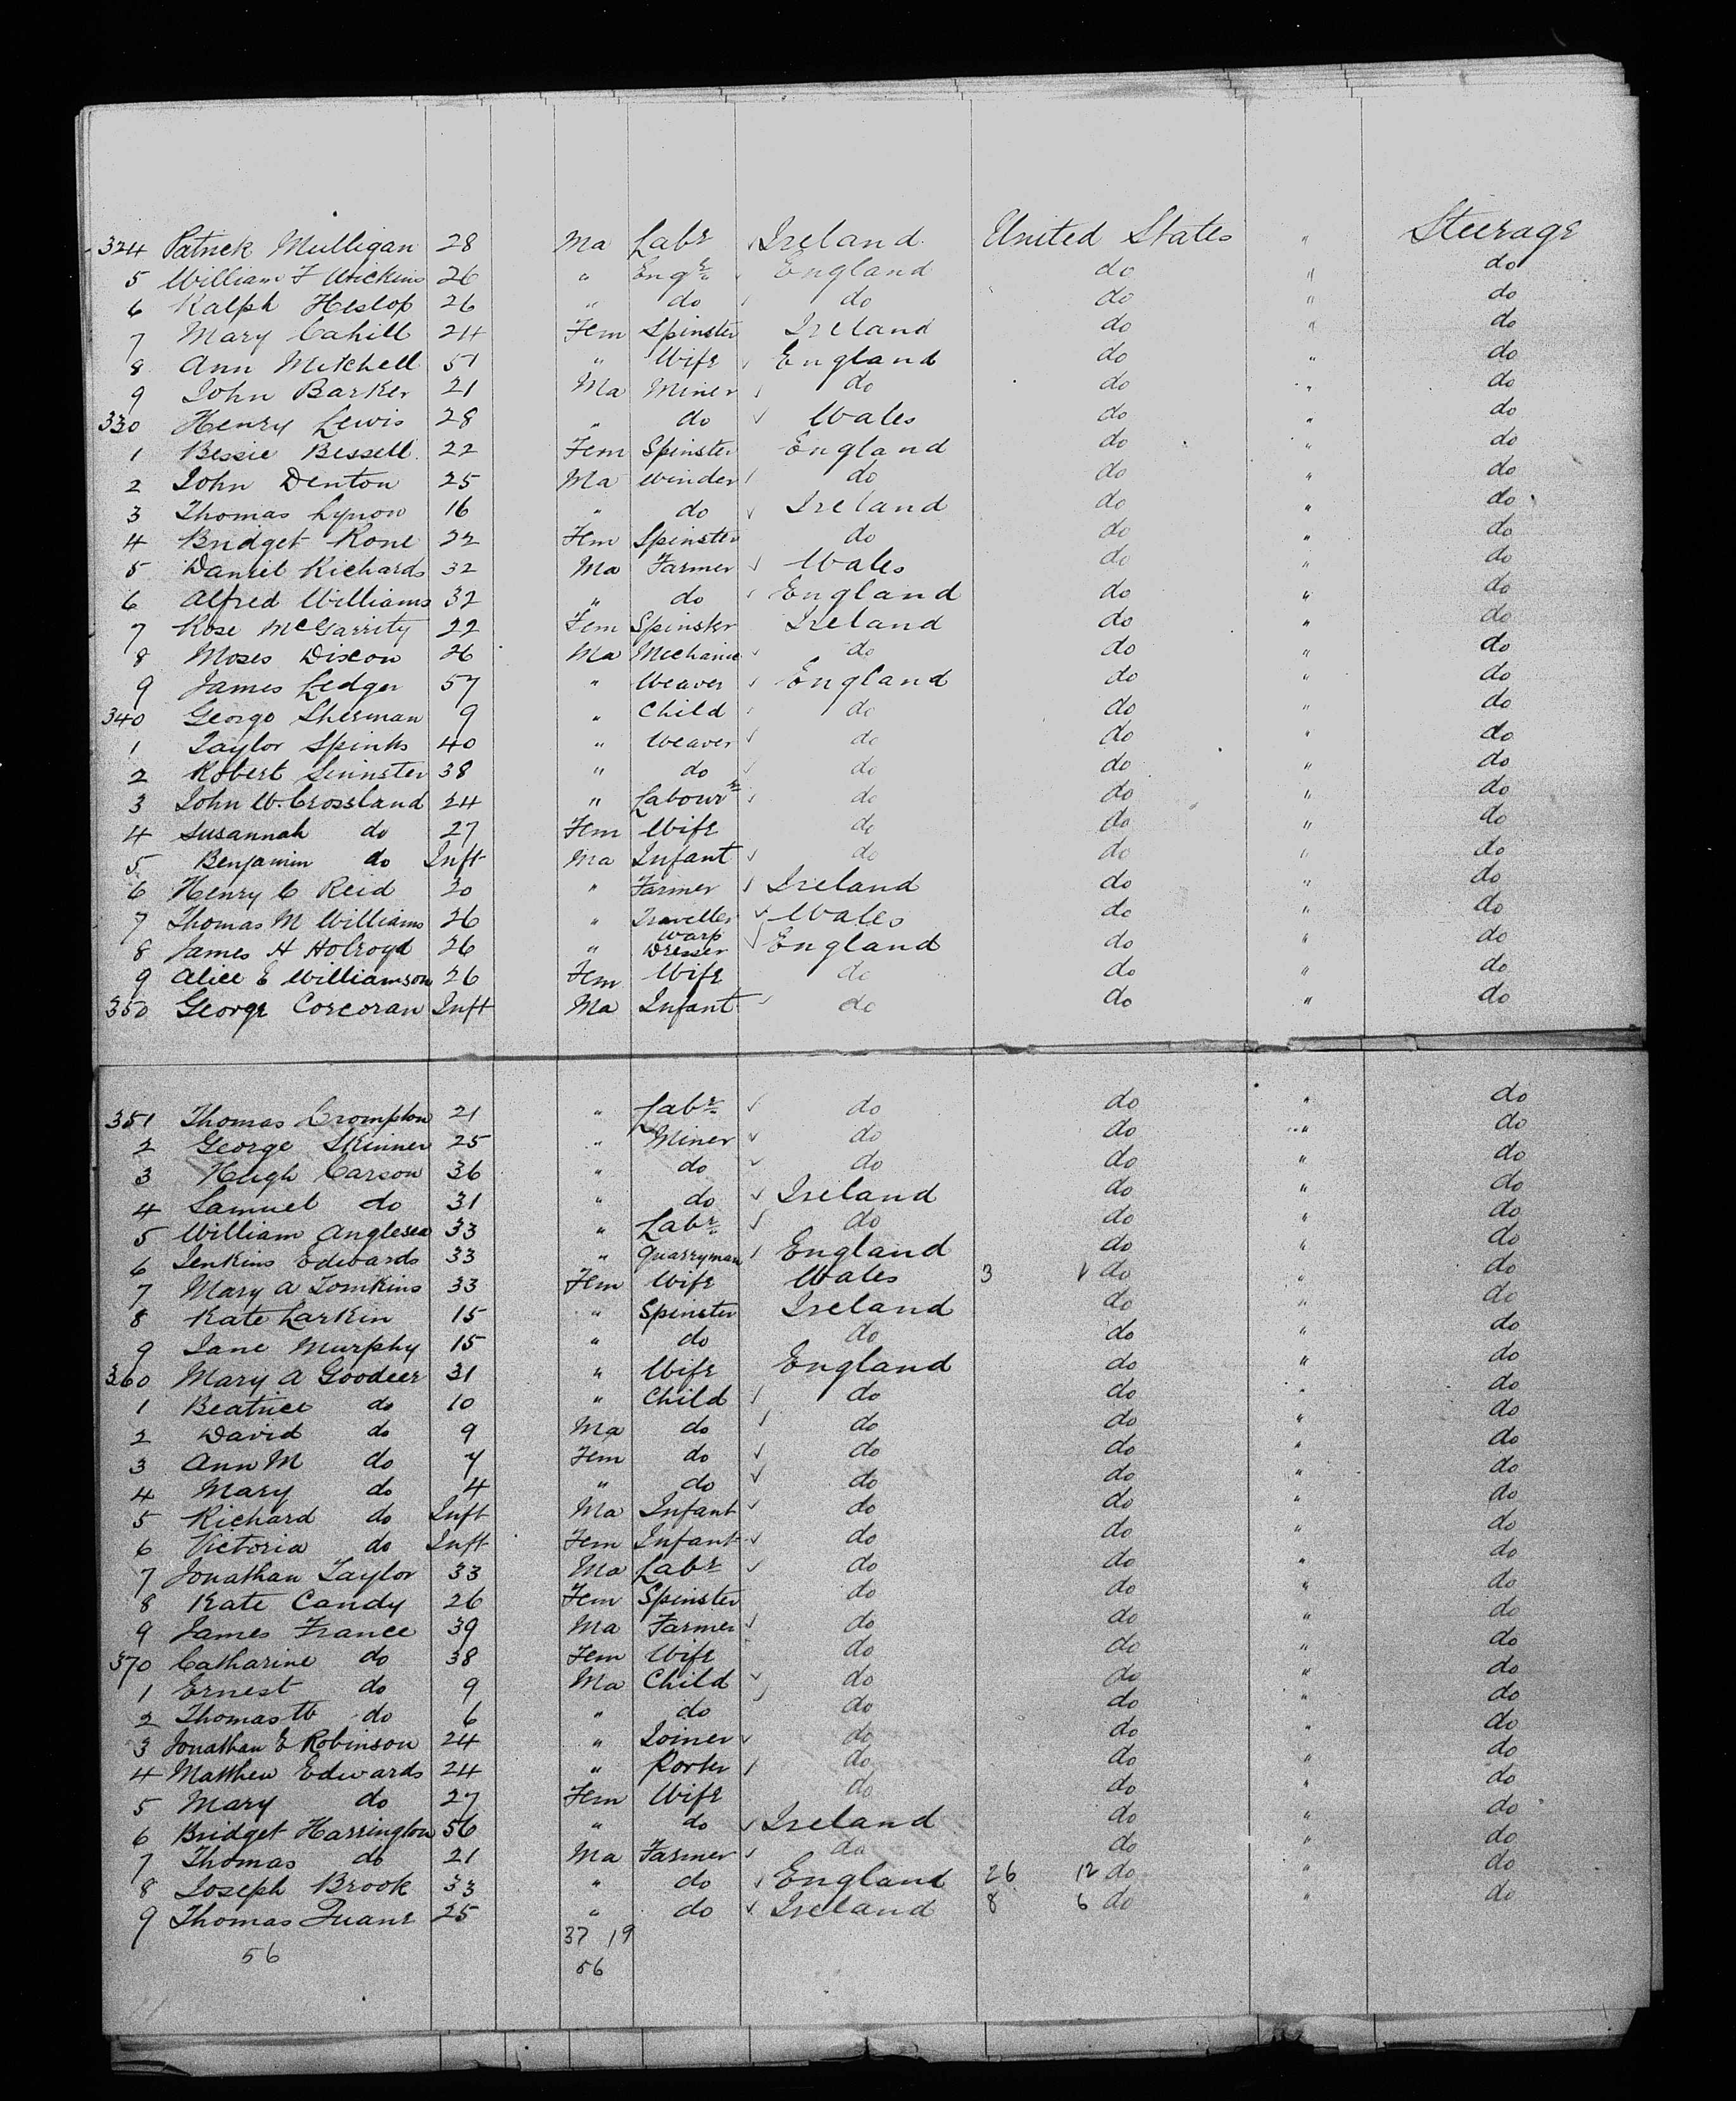 324 Patrick Mulligan 28 Ma Labr Ireland United States " Steerage
5 William F 26 " Engr England do " do
6 Ralph Heslop 26 " do do do " do
7 Mary Cahill 24 Fem Spinster Ireland do " do
8 Ann Mitchell 51 " Wife England do " do
9 John Barker 21 Ma Miner do do " do
330 Henry Lewis 28 " do Wales do " do
1 Bessie Bessell 22 Fem Spinster England do " do
2 John Denton 25 Ma Winder do do " do
3 Thomas Lynon 16 " do Ireland do " do
4 Bridget Kone 22 Fem Spinster do do " do
5 Daniel Richards 32 Ma Farmer Wales do " do
6 Alfred Williams 32 " do England do " do
7 Rose McGarrity 22 Fem Spinster Ireland do " do
8 Moses Dixon 26 Ma Mechanic do do " do
9 James Ledger 57 " Weaver England do " do
340 George Sherman 9 " Child do do " do
1 Taylor Spinks 40 " Weaver do do " do
2 Robert 38 " do do do " do
3 John W. Crossland 24 " Labourr do do " do
4 Susannah do 27 Fem Wife do do " do
5 Benjamin do Inft Ma Infant do do " do
6 Henry C Reid 20 " Farmer Ireland do " do
7 Thomas M Williams 26 " Traveller Wales do " do
8 James H Holroyd 26 " Warp Dresser England do " do
9 Alice E Williamson 26 Fem Wife do do " do
350 George Corcoran Inft Ma Infant do do " do
351 Thomas Crompton 21 " Labr do do " do
2 George Skinner 25 " Miner do do " do
3 Hugh Carson 36 " do do do " do
4 Samuel do 31 " do Ireland do " do
5 William Anglesea 33 " Labr do do " do
6 Jenkins Edwards 33 " Quarryman England do " do
7 Mary A Tomkins 33 Fem Wife Wales 3 do " do
8 Kate Larkin 15 " Spinster Ireland do " do
9 Jane Murphy 15 " do do do " do
360 Mary A Goodeer 31 " Wife England do " do
1 Beatrice do 10 " Child do do " do
2 David do 9 Ma do do do " do
3 Ann M do 7 Fem do do do " do
4 Mary do 4 " do do do " do
5 Richard do Inft Ma Infant do do " do
6 Victoria do Inft Fem Infant do do " do
7 Jonathan Taylor 33 Ma Labr do do " do
8 Kate Candy 26 Fem Spinster do do " do
9 James France 39 Ma Farmer do do " do
370 Catharine do 38 Fem Wife do do " do
1 Ernest do 9 Ma Child do do " do
2 Thomas W do 6 " do do do " do
3 Jonathan E Robinson 24 " Joiner do do " do
4 Matthew Edwards 24 " Porter do do " do
5 Mary do 27 Fem Wife do do " do
6 Bridget Harrington 56 " do Ireland do " do
7 Thomas do 21 Ma Farmer do do " do
8 Joseph Brook 33 " do England 26 12 do " do
9 Thomas 25 " do Ireland 8 6 do " do
56 37 19
56